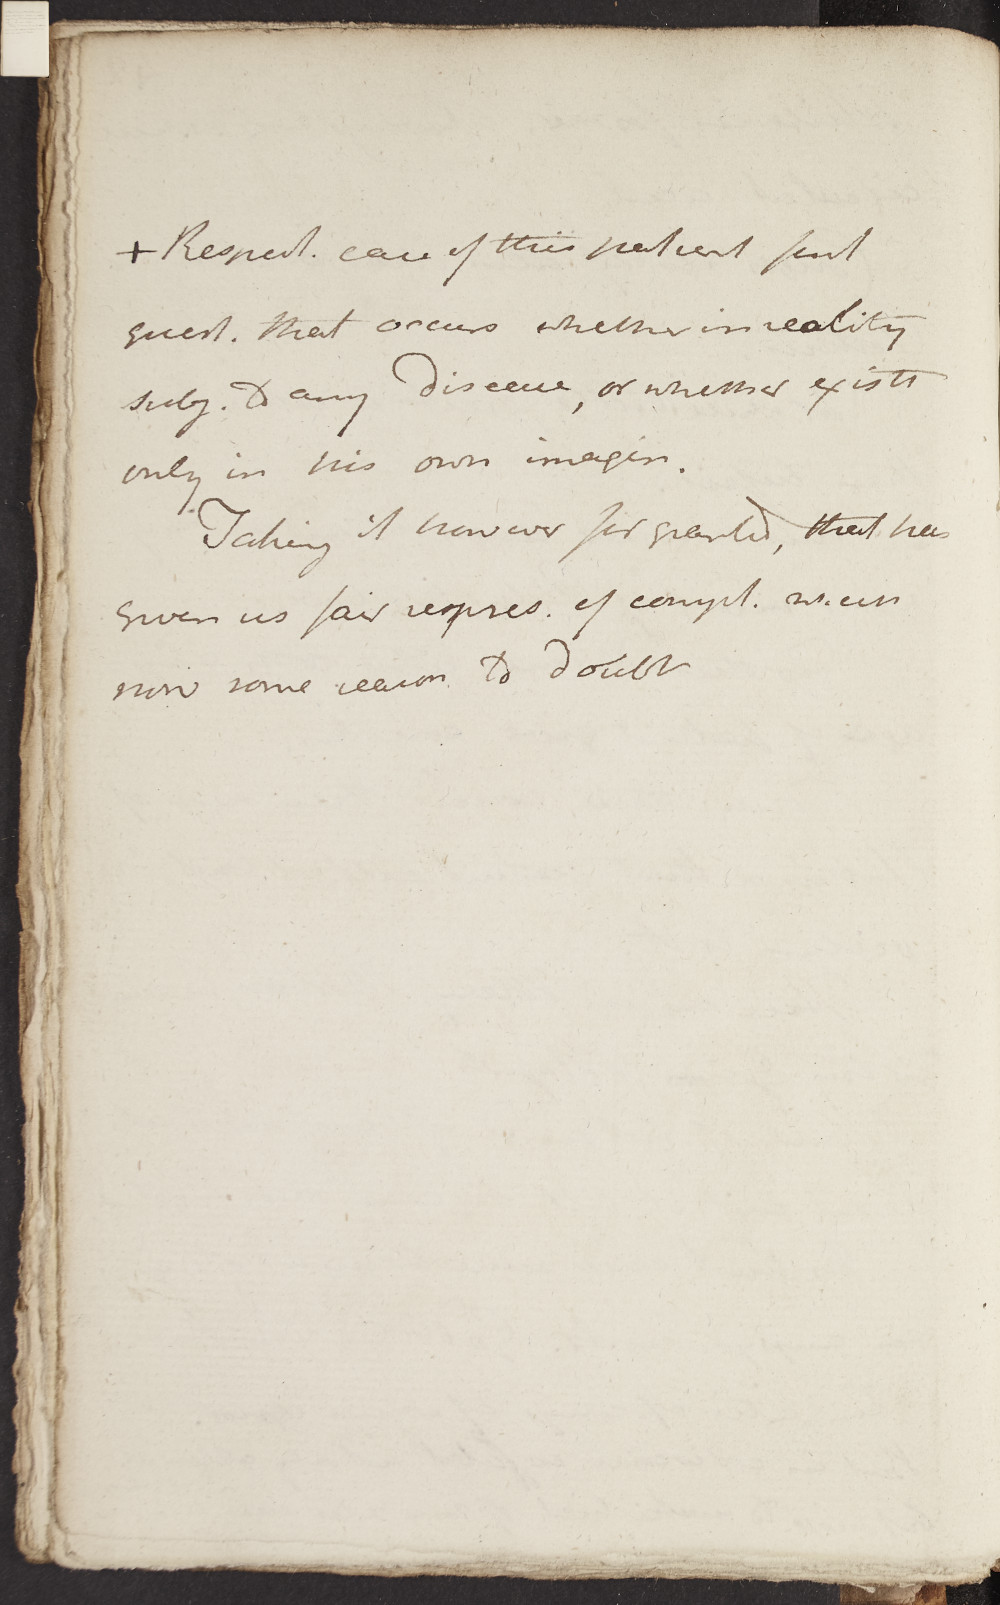 + Respect. case of this patient first
quest. that occurs whether in reality
subj. to any Disease, or whether exists
only in his own imagin.
Taking it however for granted, that has
given us fair repres. of compl.
now some reason to doubt